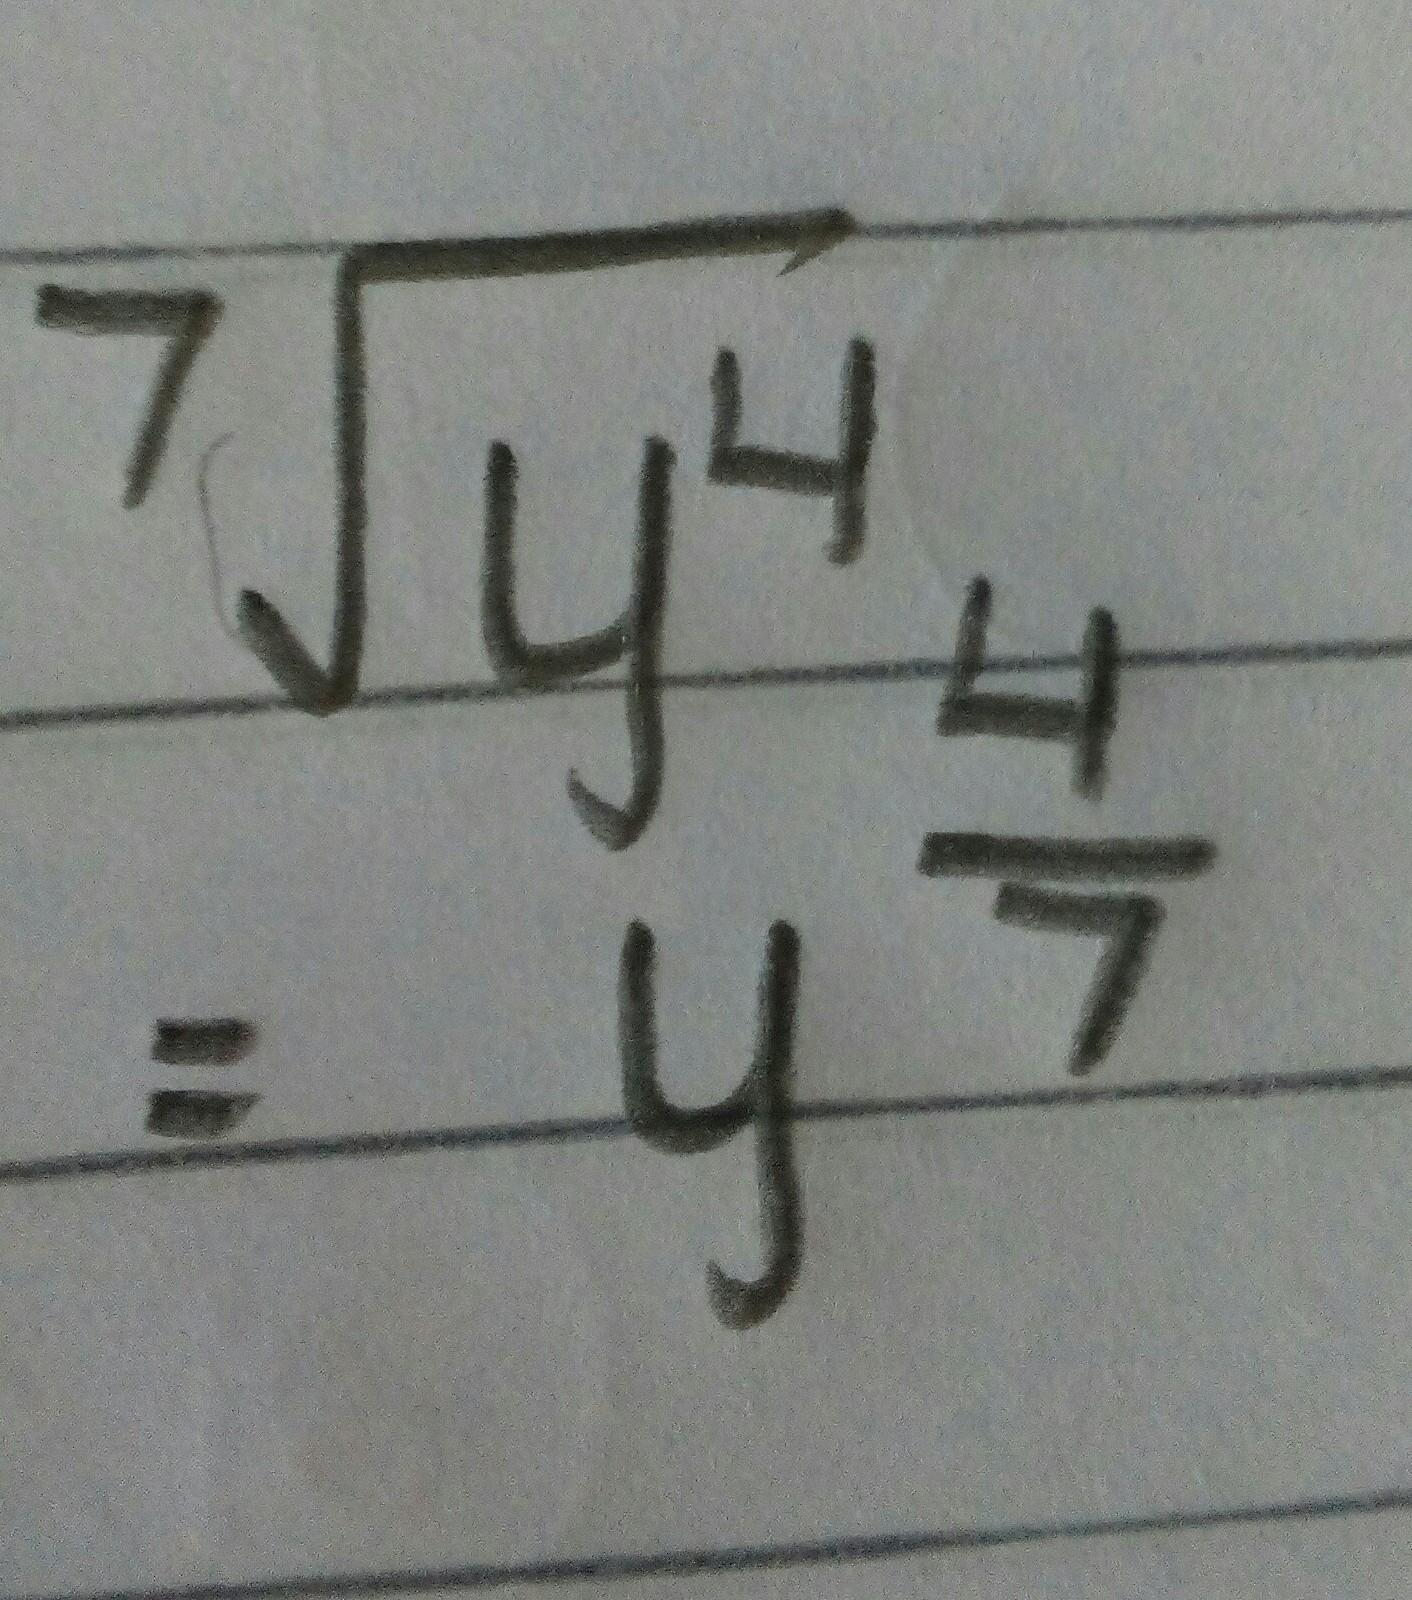 ⁷√y⁴
= y^(4/7)